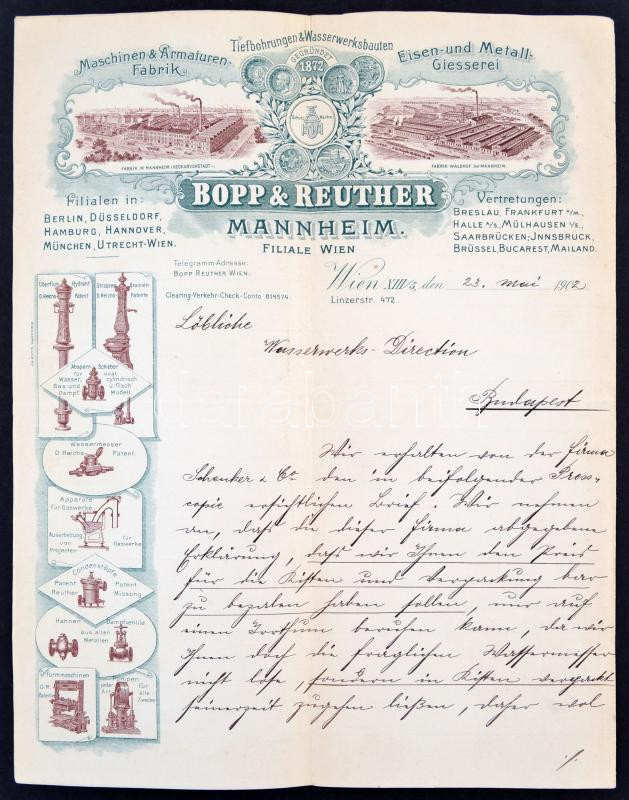 Tiefbohrungen & Wasserwerksbauten
Maschinen & Armaturen-
Fabrik
GEGRÜNDET
1872
Eisen- und Metall-
Giesserei
Schutz Marke
FABRIK IN MANNHEIM (NECKARVORSTADT).
FABRIK WALDHOF bei MANNHEIM.
BOPP & REUTHER
MANNHEIM.
FILIALE WIEN
Filialen in:
BERLIN, DÜSSELDORF,
HAMBURG, HANNOVER,
MÜNCHEN, UTRECHT-WIEN.
Vertretungen:
BRESLAU, FRANKFURT a/M.,
HALLE a/S., MÜLHAUSEN i/E.,
SAARBRÜCKEN, JNNSBRUCK,
BRÜSSEL, BUCAREST, MAILAND.
Telegramm-Adresse:
BOPP REUTHER WIEN.
Clearing-Verkehr-Check-Conto 814574.
Wien XIII/5, den 23. Mai 1912
Linzerstr. 472.
Überflur Hydrant
D.Reichs Patent
Strassen Brunnen
D.Reichs- Patente
Absperr Schieber
für oval,
Wasser, cylindrisch
Gas und u. flach
Dampf. Modell.
Wassermesser
D. Reichs Patent.
Apparate
für Gaswerke
Ausarbeitung
von
Projecten
für
Gaswerke
Condenstöpfe
Patent Patent
Reuther Missong
Hahnen Dampfventile
aus allen
Metallen
Formmaschinen
D.R.
Patente
Pumpen
jeder für
Art alle
Zwecke
Löbliche
Wasserwerks-Direction
Budapest
Wir erhalten von der Firma
Schenker & Co den in beifolgender Press-
copie ersichtlichen Brief. Wir nehmen
an, dass die dieser Firma abgegebene
Erklärung, dass wir Ihnen den Preis
für die Kisten und Verpackung bar
zu bezalen haben sollen, nur auf
einen Irrthum beruhen kann, da wir
Ihnen doch die fraglichen Wassermesser
nicht lose, sondern in Kisten verpackt
seinerzeit zugehen ließen, daher wol
./.
darabanth